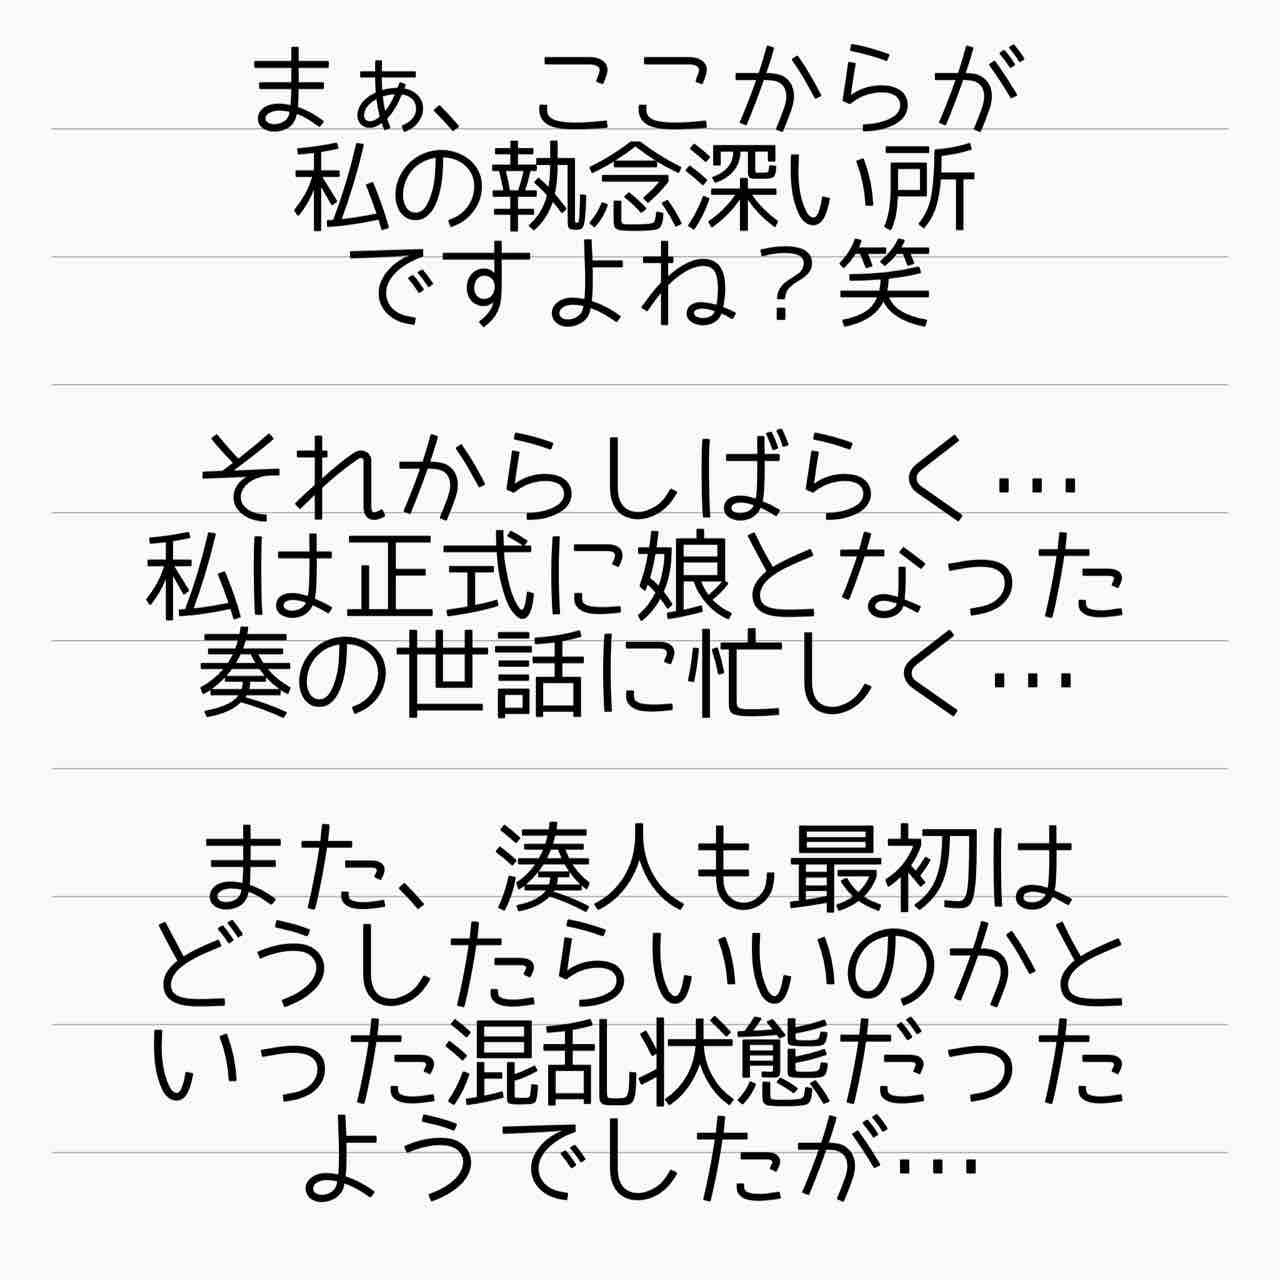 まぁ、ここからが
私の執念深い所
ですよね？笑
それからしばらく…
私は正式に娘となった
奏の世話に忙しく…
また、湊人も最初は
どうしたらいいのかと
いった混乱状態だった
ようでしたが…